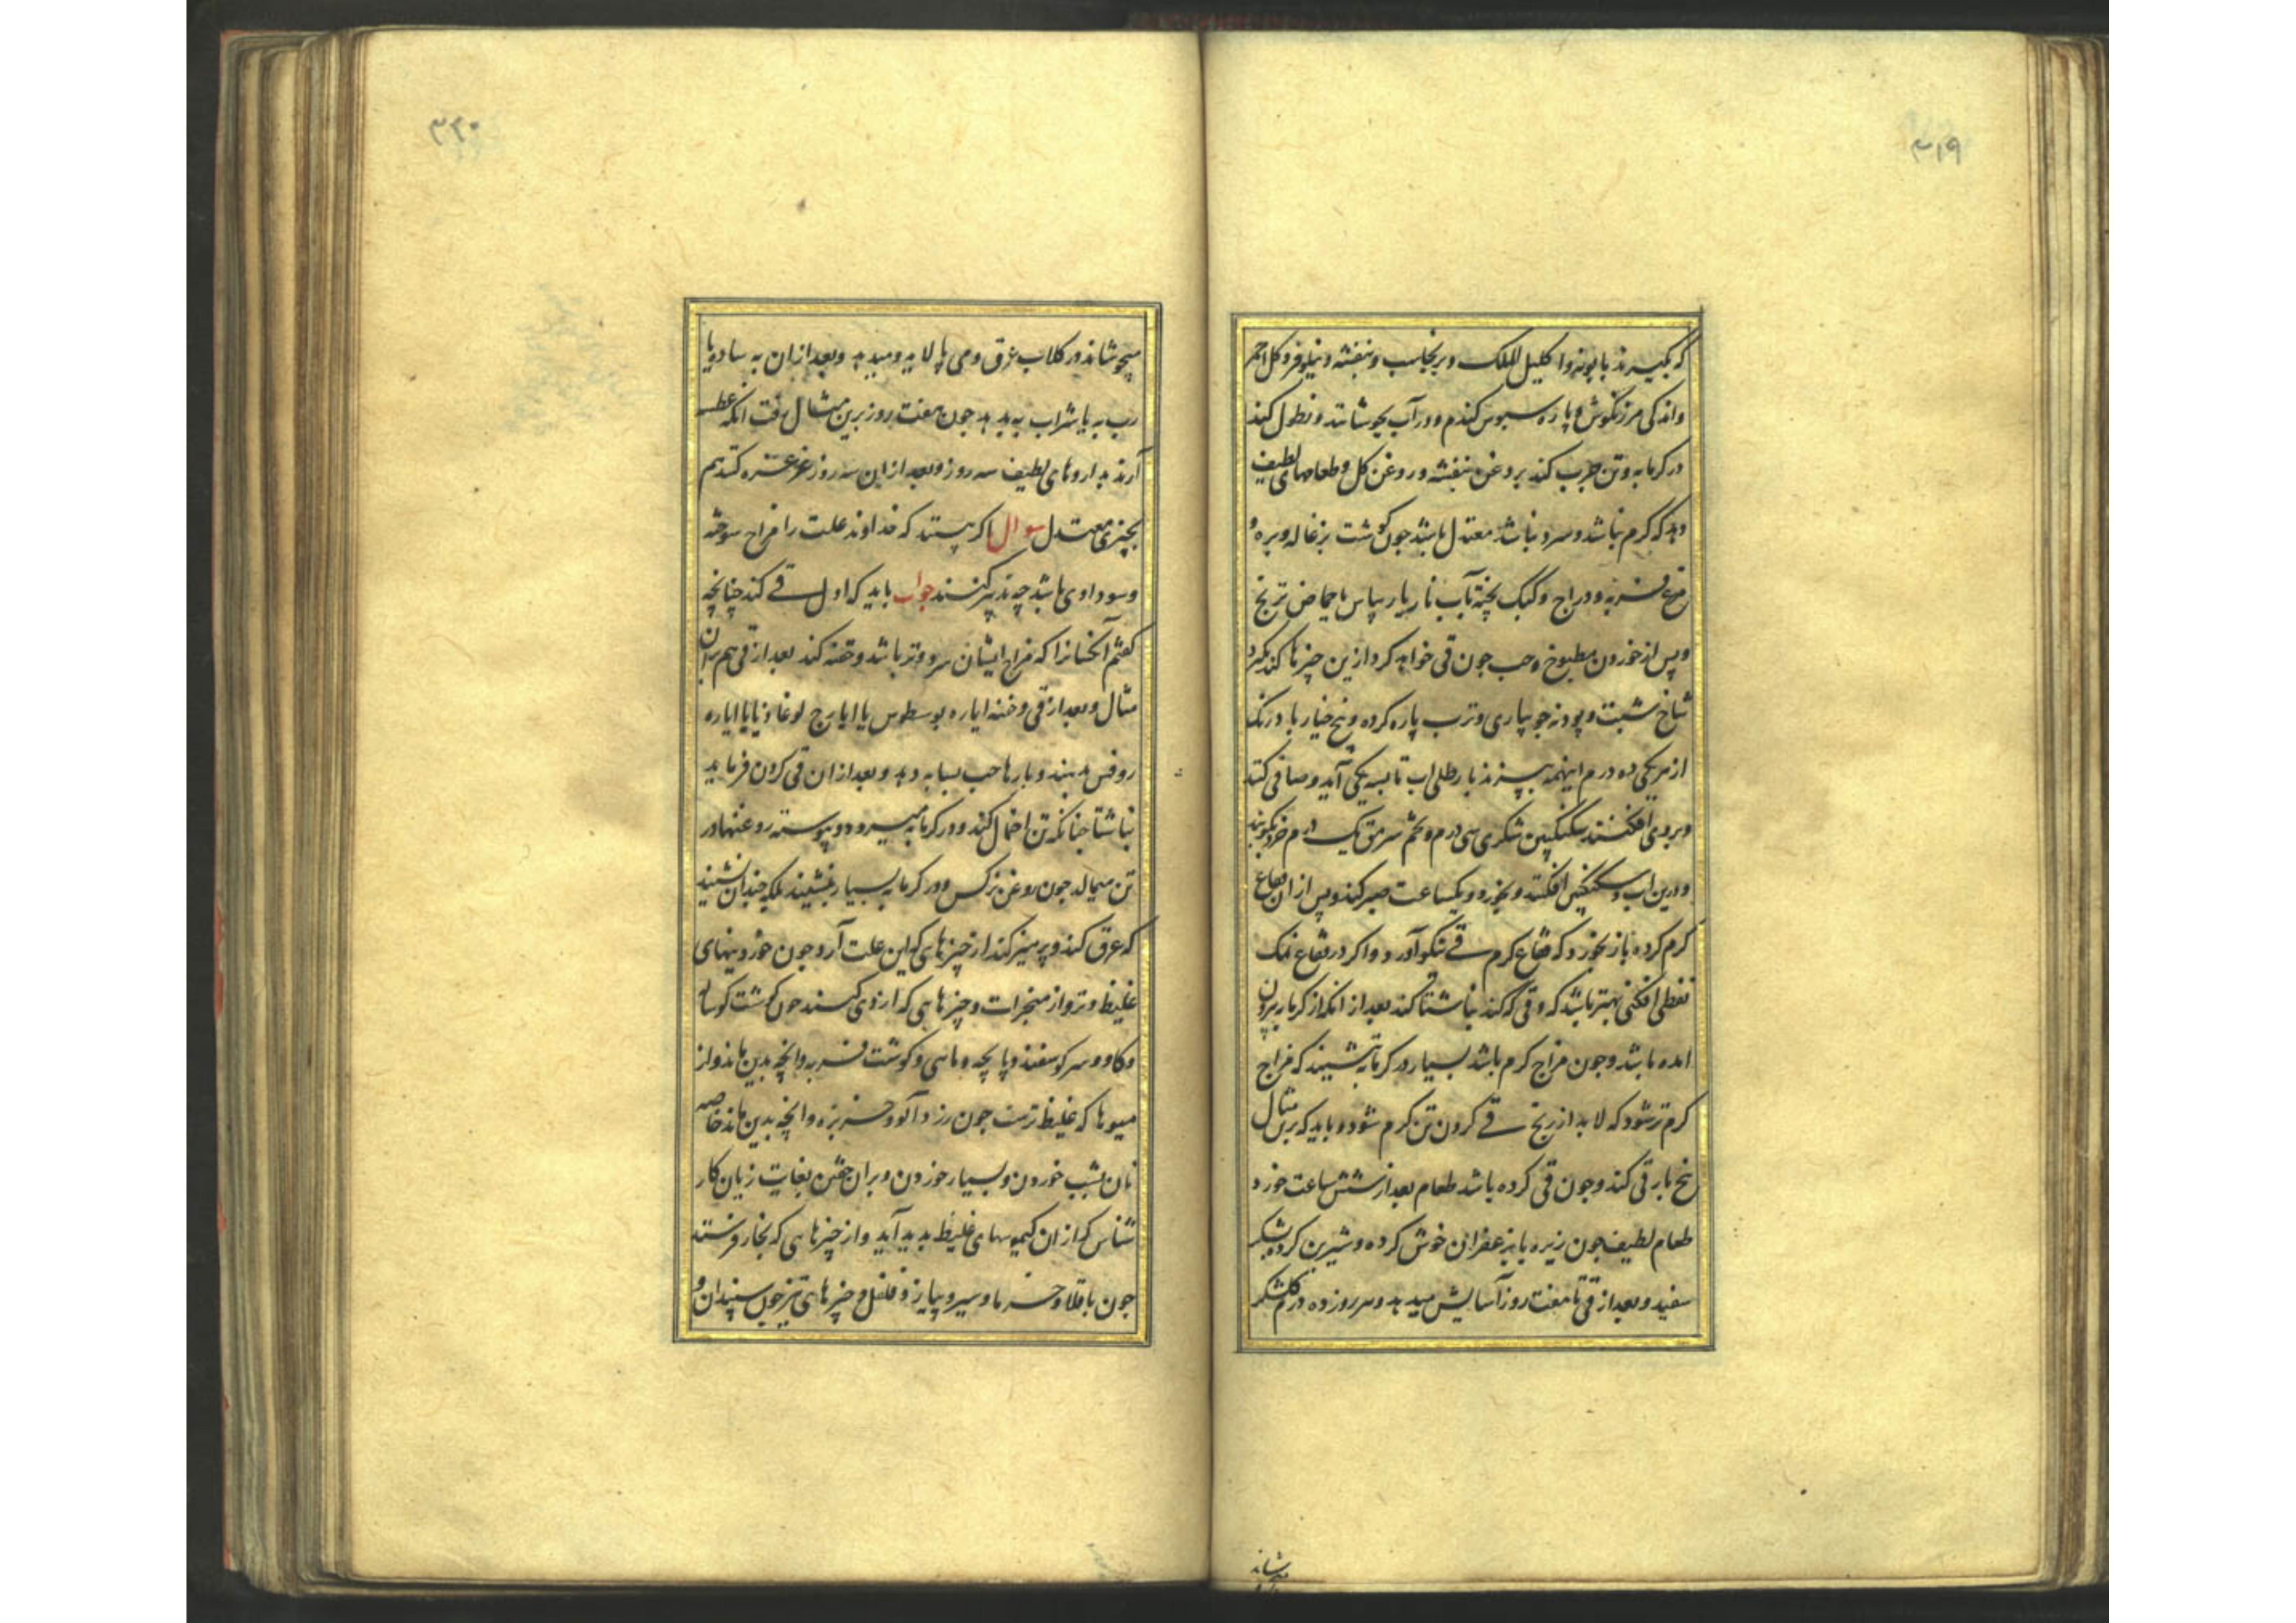 ۳۱۹
که بگیرند بابونه و اکلیل الملک و برنجاسب و بنفشه و نیلوفر و کل احمر
و اندکی مرزنکوش و پاره سبوس کندم و در آب بجوشانند و نطول کند
در کرمابه و تن چرب کند بروغن بنفشه و روغن کل و طعامهای لطیف
دهد که کرم نباشد و سرد نباشد معتدل باشد چون کوشت بزغاله و بره و
مرغ فربه و دراج و کبک پخته بآب نار یا ریباس یا حماض ترنج
و پس از خوردن مطبوخ و حب چون قی خواهد کرد ازین چیزها کند بکیرد
شاخ شبت و پودنه جویباری و ترب پاره کرده و بیخ خیار بادرنک
از هر یکی ده درم اینهمه بپزند بار طلی اب تا بسه یکی آید و صافی کند
و بروی افکنند سکنکبین شکری سی درم و تخم سرمق یک درم خرد بکوبند
و درین اب و سکنکبین افکند و بخورد و یکساعت صبر کند و پس از ان فقاع
کرم کرده باز بخورد که فقاع کرم قی نیکو آورد و اکر در فقاع نمک
نفطی افکنی بهتر باشد که و قی که کند بناشتا کند بعد از انکه از کرمابه بیرون
امده باشد و چون مزاج کرم باشد بسیار در کرمابه نشیند که مزاج
کرم تر شود که لابد از رنج قی کردن تن کرم شود و باید که برین مثال
پنج بار قی کند و چون قی کرده باشد طعام بعد از شش ساعت خورد
طعام لطیف چون زیره با بزعفران خوش کرده و شیرین کرده بشکر
سفید و بعد از قی تا هفت روز آسایش میدهد و هر روز ده درم کلشکر
۳۲۰
میجوشاند در کلاب عرق و می پالاید و میدهد و بعد از ان به ساده یا
رب به یا شراب به بدهد چون هفت روز برین مثال رفت انکه عطسه
آرند بداروهای لطیف سه روز و بعد از ان سه روز غرغره کند هم
بچیزی معتدل سوال اکر پرسند که خداوند علت را مزاج سوخته
و سوداوی باشد چه تدبیر کنند جواب باید که اول قی کند چنانچه
کفتم آنکسانرا که مزاج ایشان سرد و تر باشد و حقنه کند بعد از قی هم بران
مثال و بعد از قی و حقنه ایاره یوسطوس یا ایارج لوغاذیا یا ایاره
روفس بدهند و بارها حب بسیابه دهد و بعد از ان قی کردن فرماید
بناشتا چنانکه تن احتمال کند و در کرمابه میرود و پیوسته روغنها در
تن میمالد چون روغن نرکس و در کرمابه بسیار ننشیند بلکه چندان نشیند
که عرق کند و پرهیز کند از چیزهایی که این علت آرد چون خوردنیهای
غلیظ و تر و از مبخرات و چیزهایی که ارزوی کنند چون کوشت کوساله
و کاو و سر کوسفند و پاچه و ماهی و کوشت فربه و انچه بدین ماند و از
میوها که غلیظ ترست چون زردآلو و خربزه و انچه بدین ماند خاصه
نان بشب خوردن و بسیار خوردن و بران خفتن بغایت زیان کار
شناس که از ان کیموسهای غلیظ پدید آید و از چیزهایی که بخار فرستد
چون باقلا و خرما و سیر و پیاز و فلفل و چیزهای تیز چون سپندان و